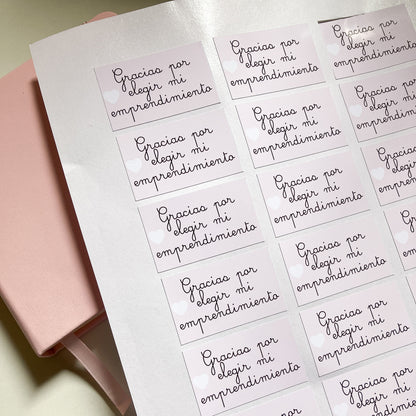 Gracias por
elegir mi
emprendimiento
Gracias por
elegir mi
emprendimiento
Gracias por
elegir mi
emprendimiento
Gracias por
elegir mi
emprendimiento
Gracias por
elegir mi
emprendimiento
Gracias por
elegir mi
emprendimiento
Gracias por
elegir mi
emprendimiento
Gracias por
elegir mi
emprendimiento
Gracias por
elegir mi
emprendimiento
Gracias por
elegir mi
emprendimiento
Gracias por
elegir mi
emprendimiento
Gracias por
elegir mi
emprendimiento
Gracias por
elegir
Gracias
elegir